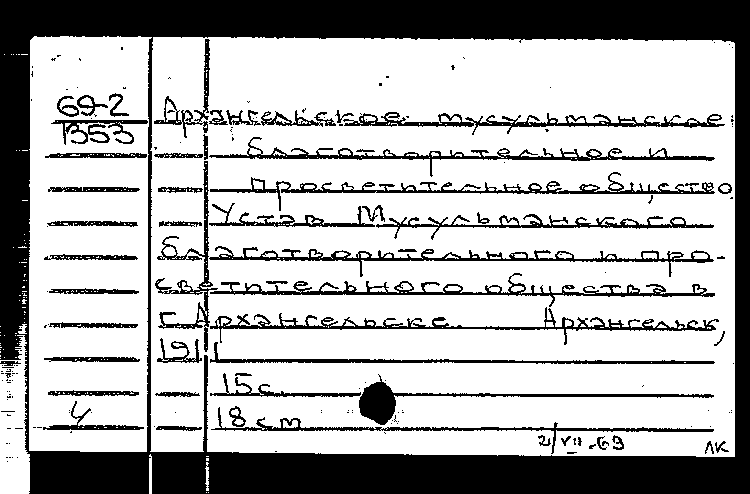 69-2
1353
Архангельское мусульманское
благотворительное и
просветительное общество
Устав Мусульманского
благотворительного и про-
светительного общества в
г. Архангельске. Архангельск,
1911
15 с.
18 см
2/VII-69
ЛК